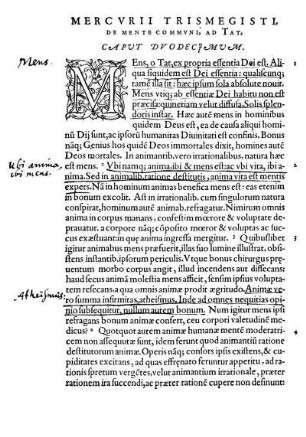 MERCVRII TRISMEGISTI,
DE MENTE COMMVNI, AD TAT,
CAPVT DVODECIMVM.
Mens.
MEns, o Tat, ex propria essentia Dei est. Ali
qua siquidem est Dei essentia: qualiscunq;
tamen illa sit: hæc ipsum sola absolute nouit.
Mens vtiq; ab essentiæ Dei habitu non est
præcisa: quinetiam velut diffusa. Solis splen
doris instar. Hæc aut mens in hominibus
quidem Deus est, ea de causa aliqui homi
nũ Dij sunt, ac ipsorũ humanitas Diuinitati est confinis. Bonus
naq; Genius hos quidẽ Deos immortales dixit, homines autẽ
Deos mortales. In animantib. vero irrationalibus, natura hæc
Vbi anima,
ibi mens.
est mens. Vbi naq; anima, ibi & mens est: ac vbi vita, ibi a-
nima. Sed in animalib. ratione destitutis, anima vita est mentis
expers. Nã in hominum animas benefica mens est: eas etenim
in bonum excolit. Ast in irrationalib. cum singulorum natura
conspirat, hominum autẽ animab. refragatur. Nimirum omnis
anima in corpus manans, confestim mœrore & voluptate de-
prauatur. a corpore naq; cõposito mœror & voluptas ac fu-
cus exæstuantin quæ anima ingressa mergitur. Quibuslibet
igitur animabus mens præfuerit, illas suo lumine illustrat, obsi-
stens instantib. ipsorum periculis. Vtque bonus chirurgus præ-
uentum morbo corpus angit, illud incendens aut diffecans:
haud secus animã molestia mens afficit, sensim ipsius volupta-
tem resecans a qua omnis animæ prodit ægritudo. Animæ ve-
Atheismus.
ro summa infirmitas, atheismus. Inde ad omnes nequitias opi-
nio subsequitur, nullum autem bonum. Num igitur mens ipsi
refragans bonum animæ confert, ceu corpori valetudinẽ me-
dicus? Quotquot autem animæ humanæ mentẽ moderatri-
cem non assequutæ sunt, idem ferunt quod animantiũ ratione
destitutorum animæ. Operis naq; consors ipsis existens, & cu-
piditates excitans, ad quas effrenato feruntur appetitu, ad ra-
tionis spretum vergẽtes, velut animantium irrationale, præter
rationem ira succendi, ac præter rationẽ cupere non definunt: